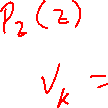 P₂(z)
Vₖ =